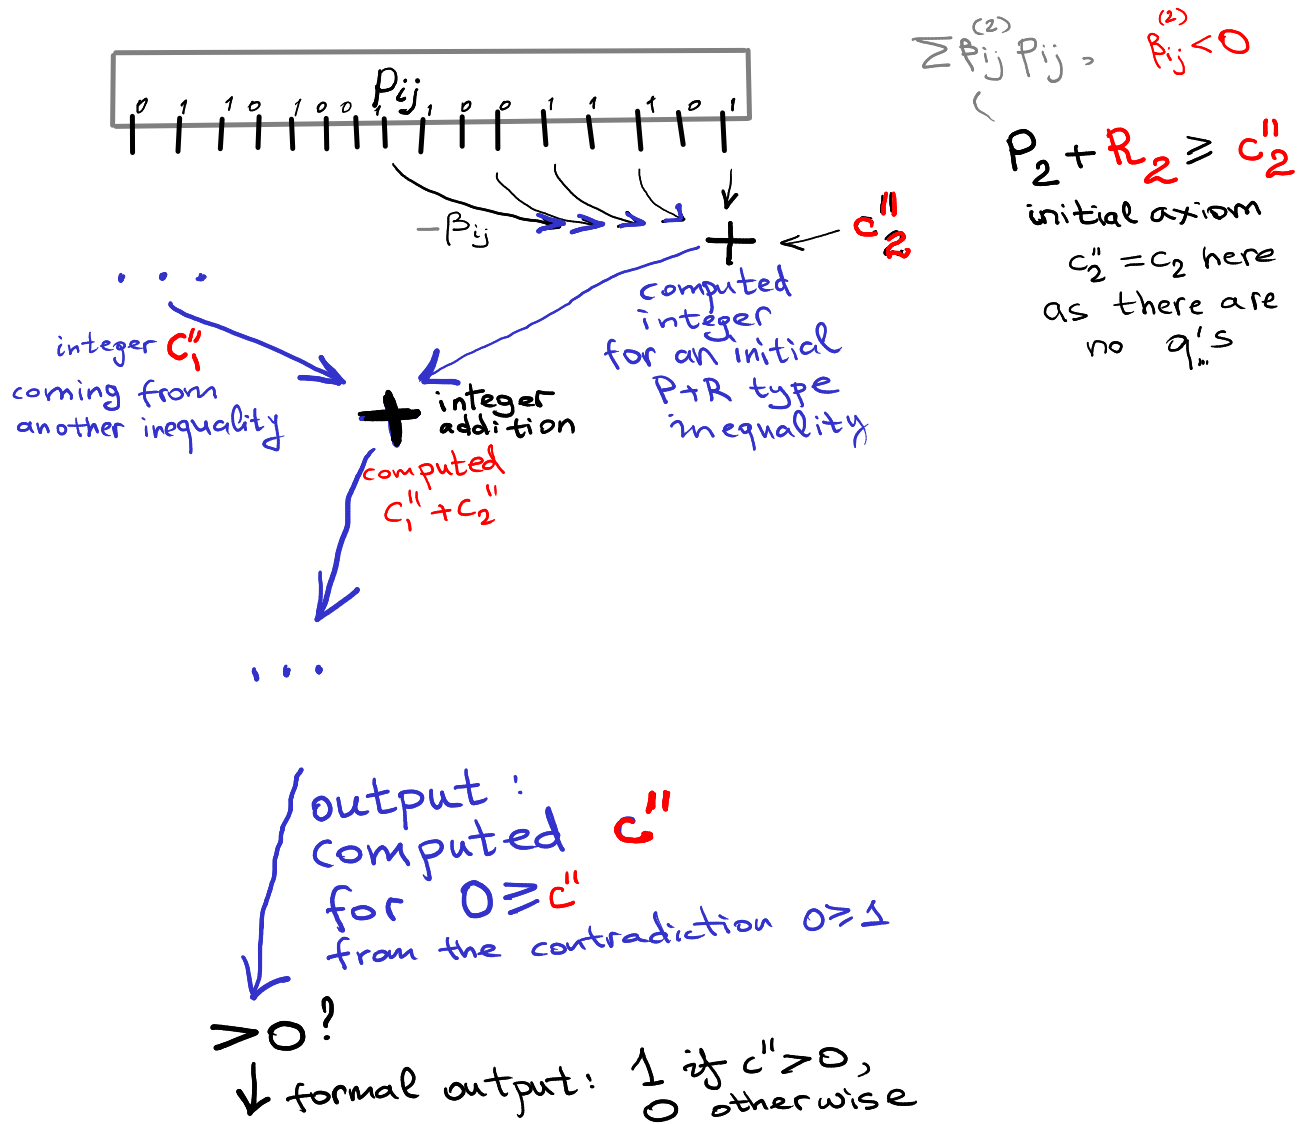 Pij
0 1 1 0 1 0 0 1 1 0 0 1 1 1 0 1
Σ βij^(2) Pij , βij^(2) < 0
P2 + R2 ⩾ c2''
initial axiom
c2'' = c2 here
as there are
no q...'s
−βij
c2''
+
computed
integer
for an initial
P+R type
inequality
...
integer c1''
coming from
another inequality
+ integer
addition
computed
c1'' + c2''
...
output:
computed c''
for 0 ⩾ c''
from the contradiction 0⩾1
>0?
formal output: 1 if c''>0,
0 otherwise